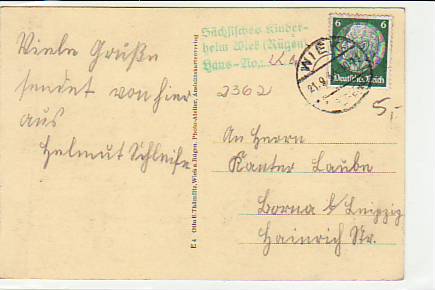 Viele Grüße
sendet von hier
aus
Helmut Schleife
E 4 Otto H. Thämlitz, Wiek a. Rügen, Photo-Atelier, Ansichtskartenverlag
Sächsisches Kinder-
heim Wiek (Rügen)
Haus-No.
2362
WIEK
21.9.
6 6
Deutsches Reich
5,-
An Herrn
Kantor Laube
Borna b Leipzig
Hainrich Str.